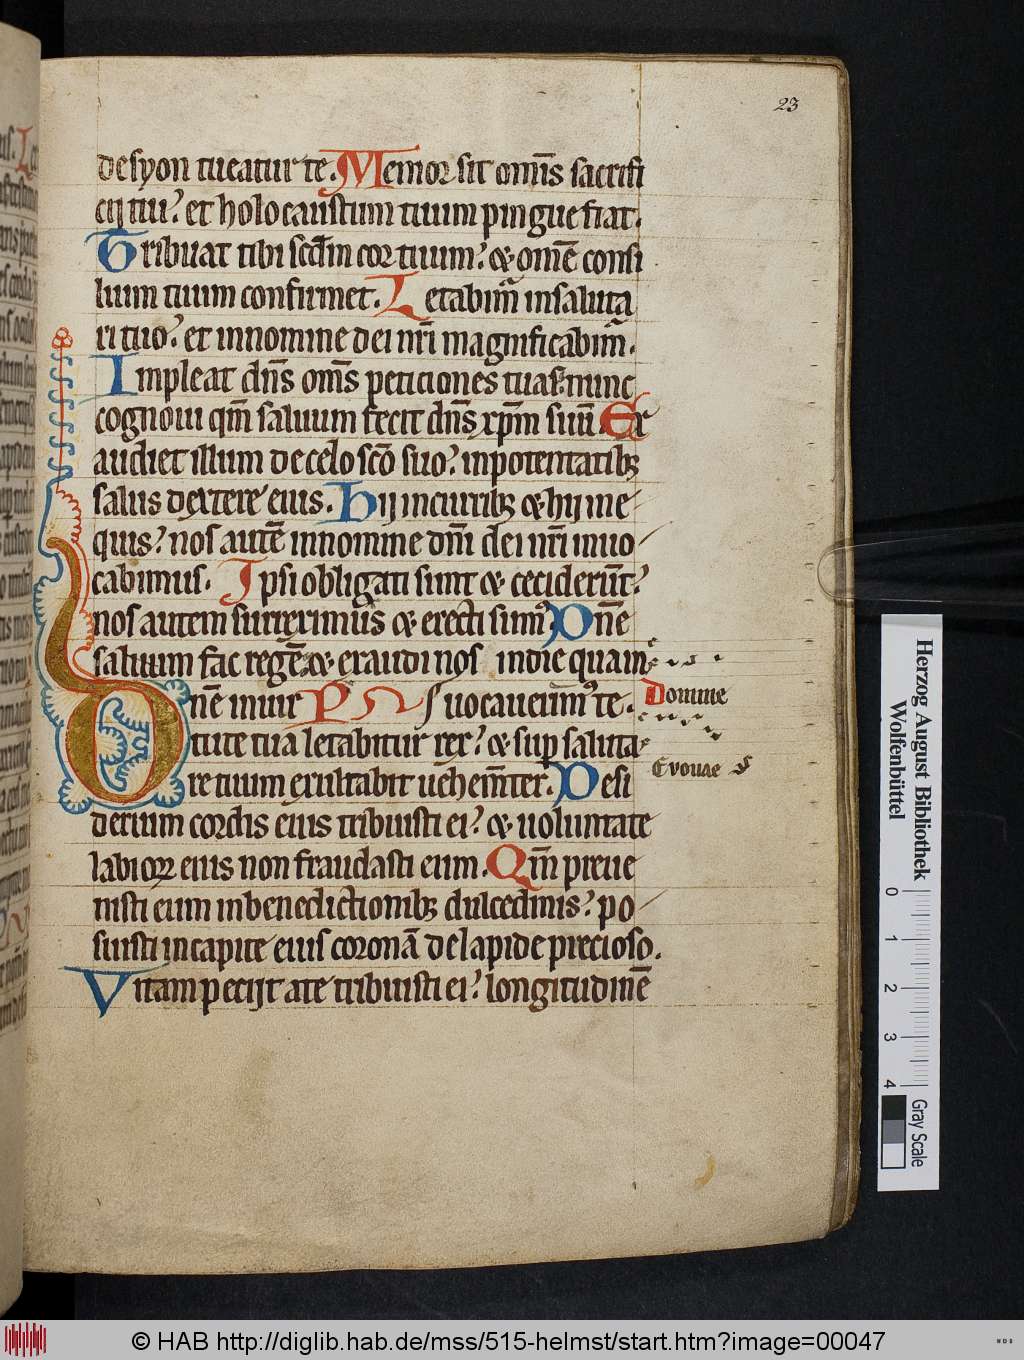 23
desyon tueatur te. Memor sit om̄is sacrifi
cij tui? et holocaustum tuum pingue fiat.
Tribuat tibi scd̄m cor tuum? & om̄e consi
lium tuum confirmet. Letabim̄ insaluta
ri tuo? et innomine dei nr̄i magnificabim̄.
Impleat dn̄s om̄s peticiones tuas nunc
cognoui qm̄ saluum fecit dn̄s xp̄m suū. Ex
audiet illum decelo sc̄o suo? inpotentatibꝫ
salus dextere eius. Hij incurribꝫ & hij ine
quis? nos autē innomine dn̄i dei nr̄i inuo
cabimus. Ipsi obligati sunt & cecider̄t?
nos autem surreximus & erecti sumꝰ. Dn̄e
saluum fac regē & exaudi nos indie quain
Dn̄e inuir uocauerimꝰ te. Domine
tute tua letabitur rex? & suꝑ saluta
re tuum exultabit uehem̄ter. Desi Evouae
derium cordis eius tribuisti ei? & uoluntate
labioꝝ eius non fraudasti eum. Qm̄ preue
nisti eum inbenedictionibꝫ dulcedinis? po
suisti incapite eius coronā delapide precioso.
Vitam pecijt ate tribuisti ei? longitudinē
Herzog August Bibliothek
Wolfenbüttel
0 1 2 3 4
Gray Scale
© HAB http://diglib.hab.de/mss/515-helmst/start.htm?image=00047